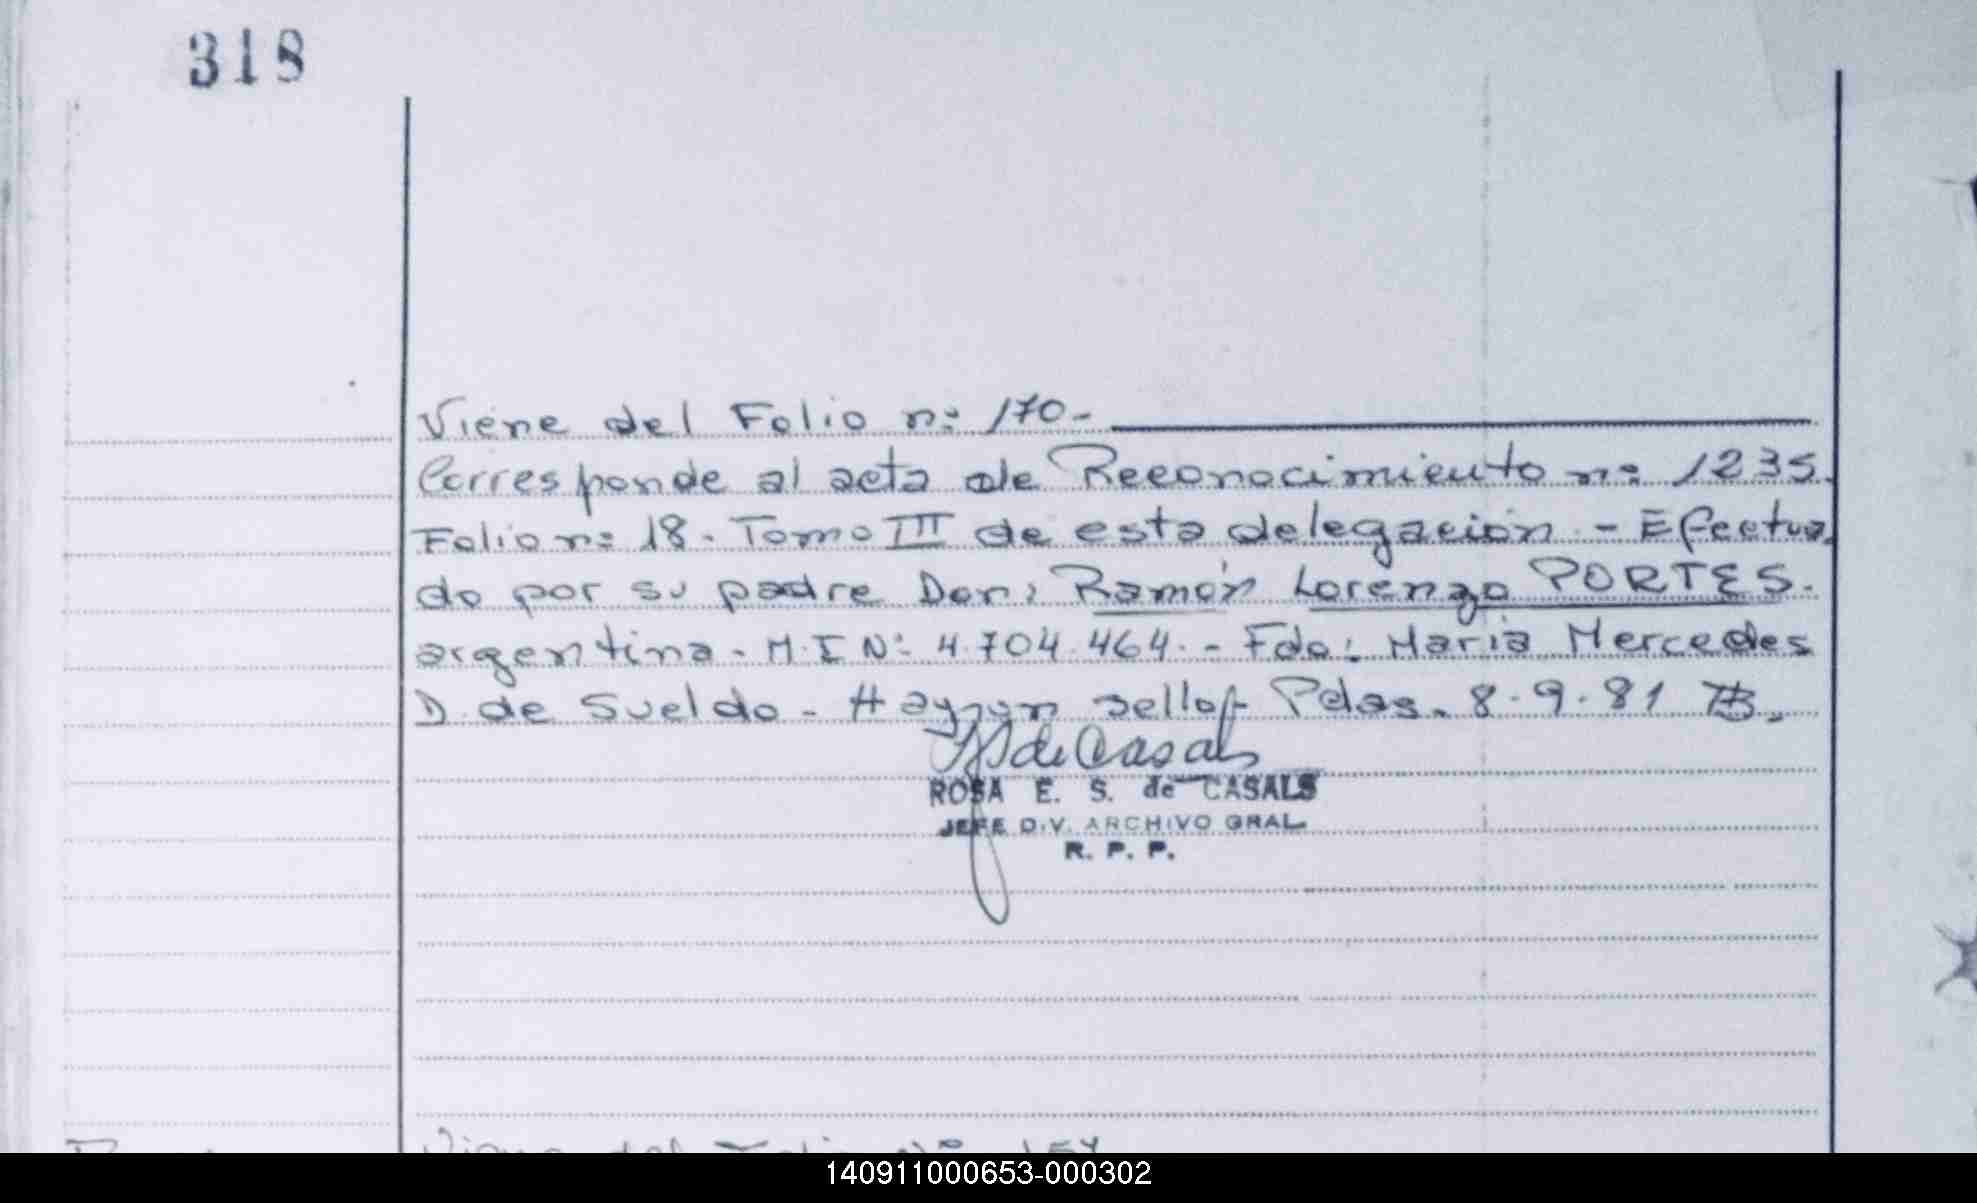 318
Viene del Folio n: 170-
Corresponde al acta de Reconocimiento n: 1235.
Folio n: 18. Tomo III de esta delegación. - Efectua
do por su padre Don: Ramón Lorenzo PORTES.
argentina. M.I Nº 4.704.464. - Fdo: Maria Mercedes
D. de Sueldo - Hay un sello Pdas. 8.9.81
de Casals
ROSA E. S. de CASALS
JEFE DIV. ARCHIVO GRAL.
R. P. P.
Viene del Folio Nº
140911000653-000302